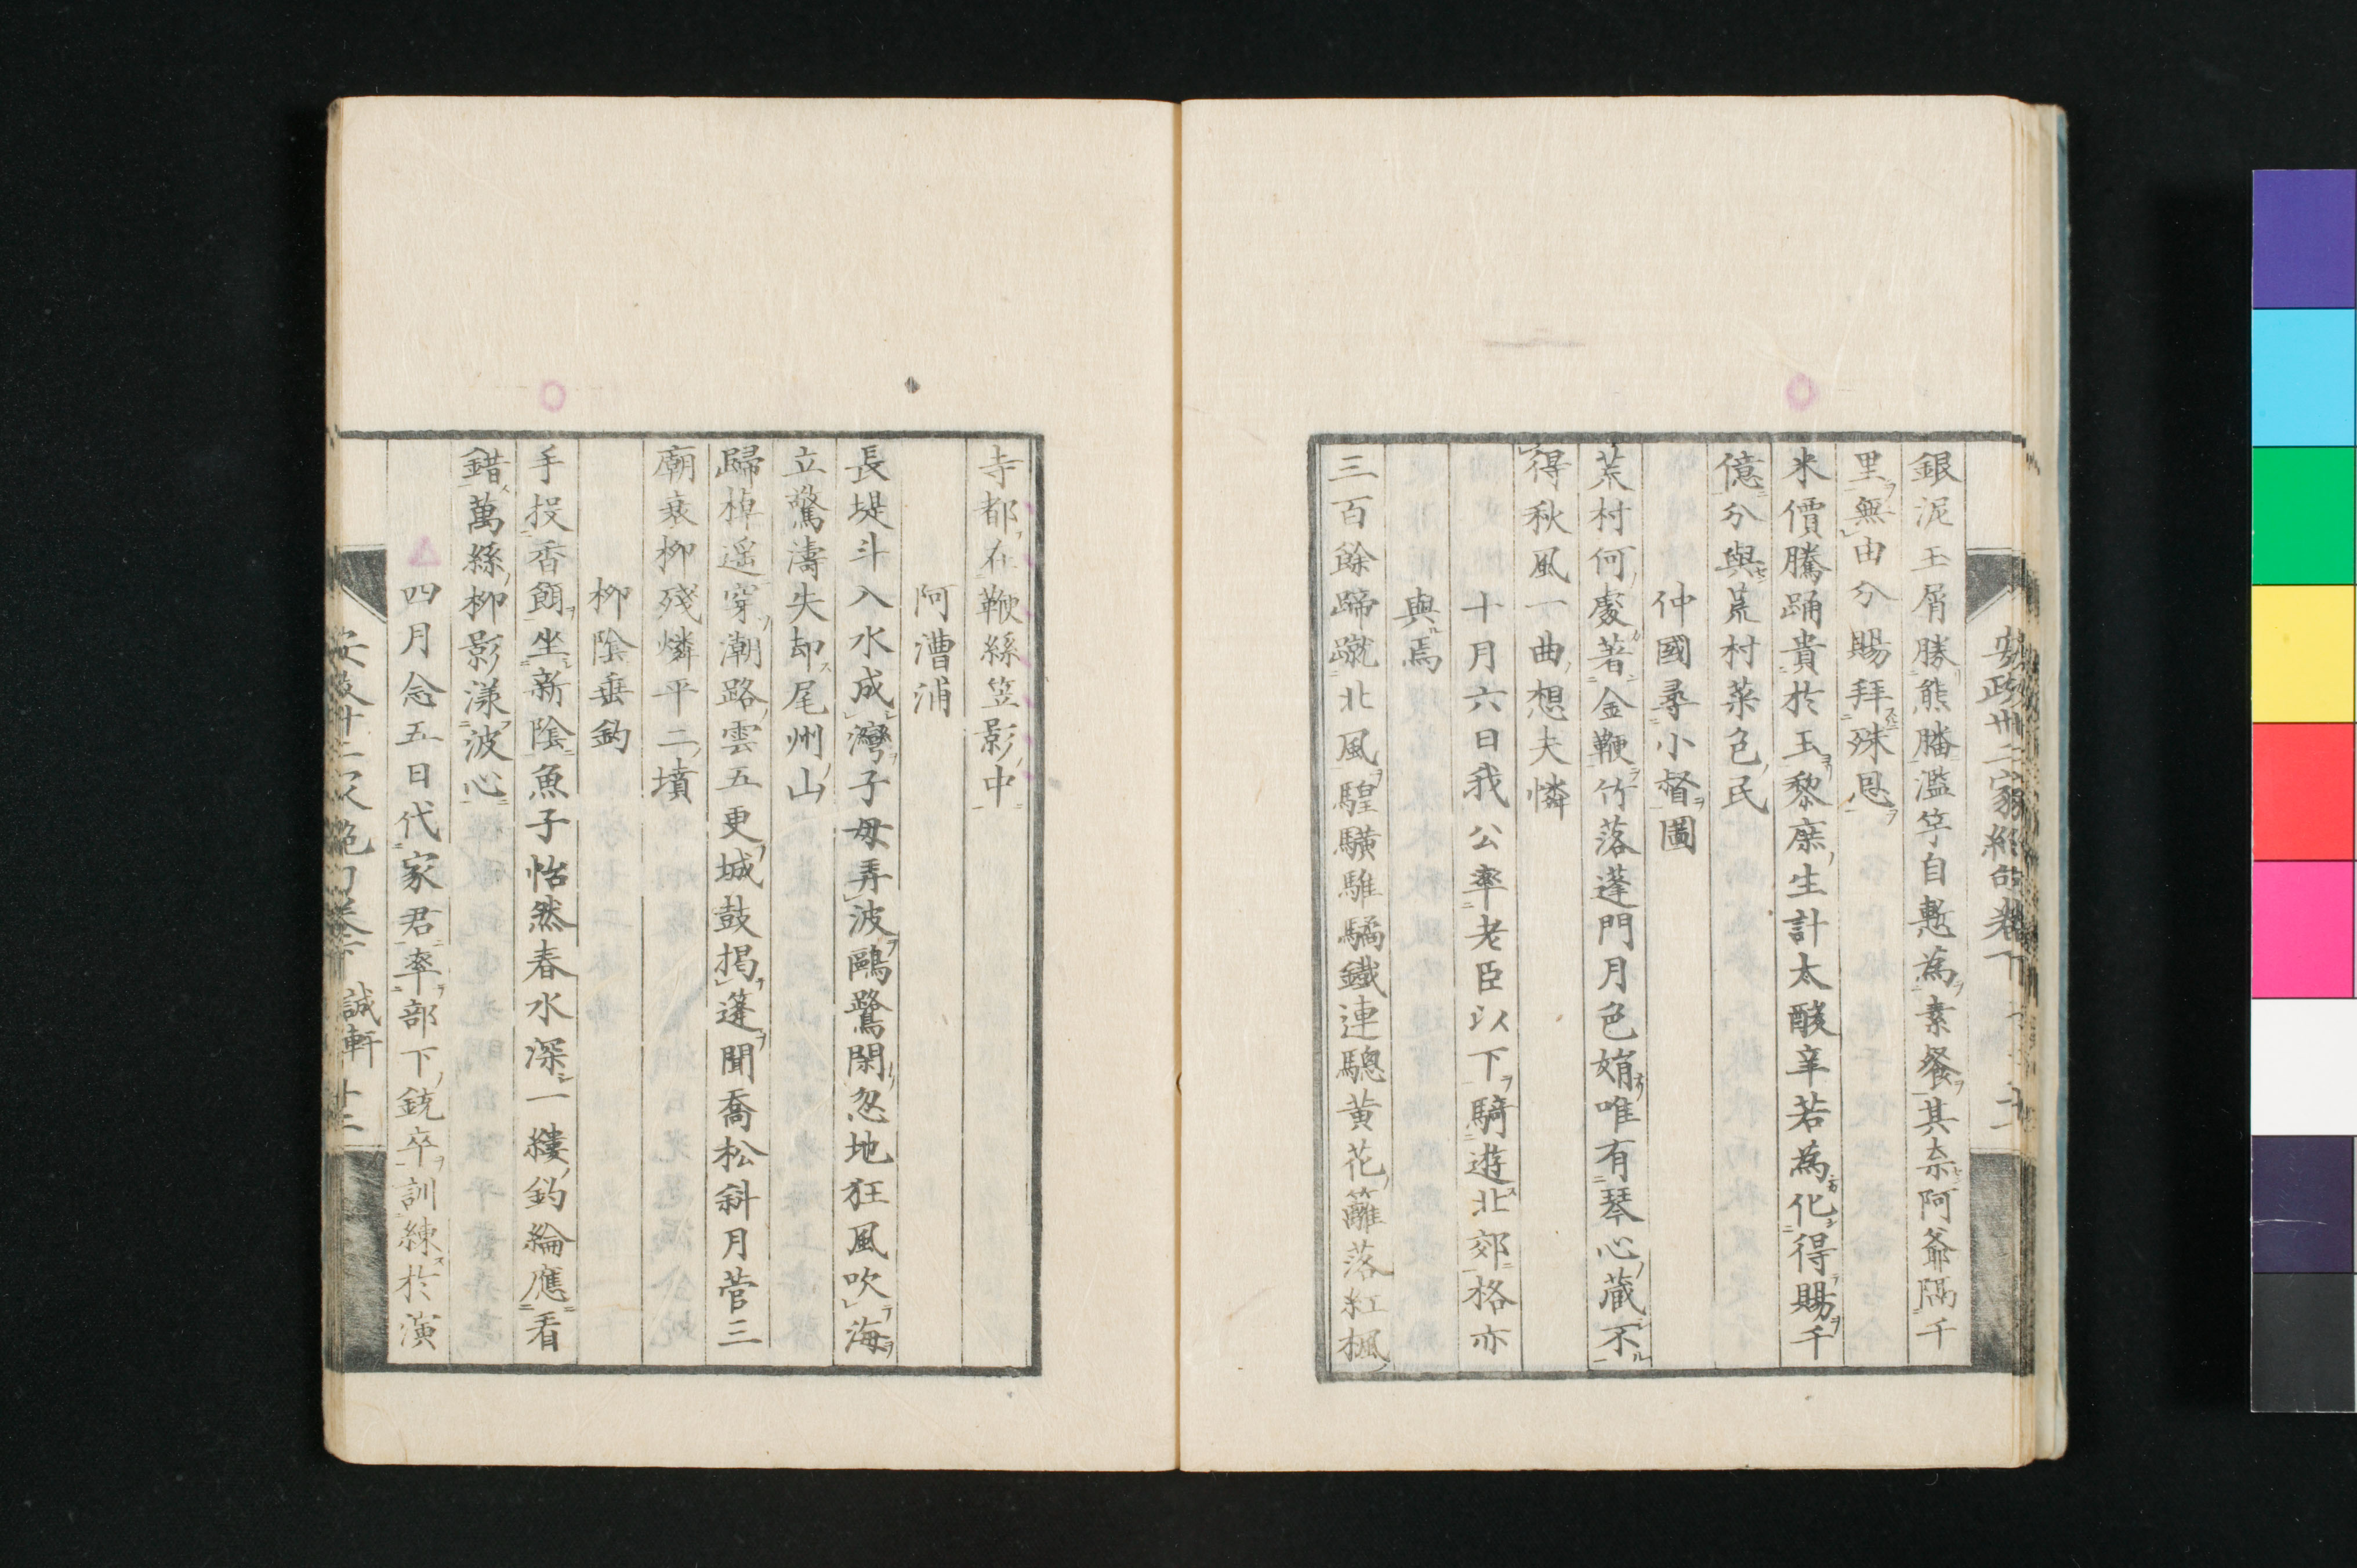 銀泥玉屑勝熊膰濫竽自慙為素餐其奈阿爺隔千
里無由分賜拜殊恩
米價騰踊貴於玉黎庶生計太酸辛若為化得賜千
億分與荒村菜色民
仲國尋小督圖
荒村何處著金鞭竹落蓬門月色娟唯有琴心藏不
得秋風一曲想夫憐
十月六日我公率老臣以下騎遊北郊格亦
與焉
三百餘蹄蹴北風騜驥騅驕鐵連驄黄花籬落紅楓
寺都在鞭絲笠影中
阿漕浦
長堤斗入水成灣子母弄波鷗鷺閑忽地狂風吹海
立驚濤失却尾州山
歸棹遥穿潮路雲五更城鼓揭篷聞喬松斜月菅三
廟衰柳殘燐平二墳
柳陰垂釣
手投香餌坐新陰魚子怡然春水深一縷釣綸應看
錯萬絲柳影漾波心
四月念五日代家君率部下銃卒訓練於演
誠軒